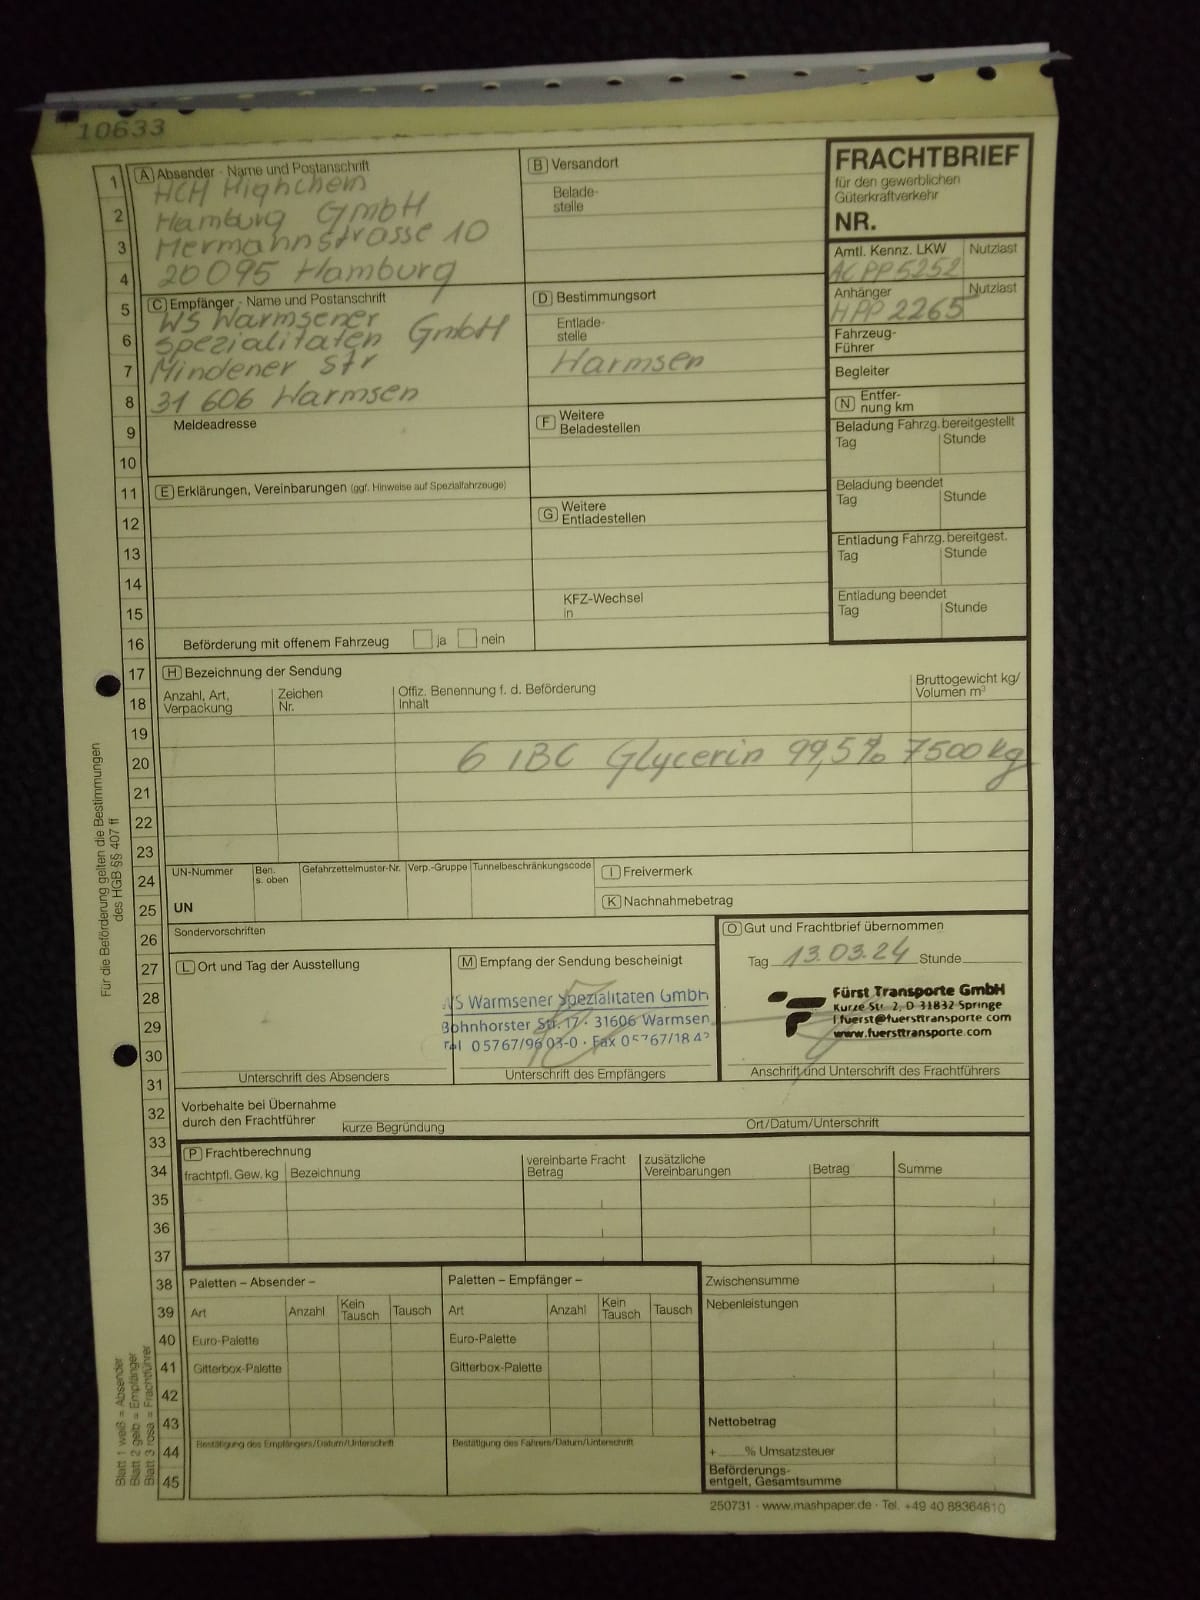 10633
FRACHTBRIEF
für den gewerblichen
Güterkraftverkehr
NR.
A Absender - Name und Postanschrift
HCH Highchem
Hamburg GmbH
Hermannstrasse 10
20095 Hamburg
B Versandort
Belade-
stelle
Amtl. Kennz. LKW Nutzlast
AC PP 5252
Anhänger Nutzlast
HPP 2265
Fahrzeug-
Führer
Begleiter
N Entfer-
nung km
C Empfänger - Name und Postanschrift
WS Warmsener
Spezialitaten GmbH
Mindener Str
31 606 Warmsen
Meldeadresse
D Bestimmungsort
Entlade-
stelle
Warmsen
F Weitere
Beladestellen
Beladung Fahrzg. bereitgestellt
Tag Stunde
Beladung beendet
Tag Stunde
Entladung Fahrzg. bereitgest.
Tag Stunde
Entladung beendet
Tag Stunde
E Erklärungen, Vereinbarungen (ggf. Hinweise auf Spezialfahrzeuge)
G Weitere
Entladestellen
KFZ-Wechsel
in
Beförderung mit offenem Fahrzeug ja nein
H Bezeichnung der Sendung
Anzahl, Art,
Verpackung
Zeichen
Nr.
Offiz. Benennung f. d. Beförderung
Inhalt
Bruttogewicht kg/
Volumen m³
6 IBC Glycerin 99,5% 7500 kg
UN-Nummer
UN
Ben.
s. oben
Gefahrzettelmuster-Nr.
Verp.-Gruppe
Tunnelbeschränkungscode
I Freivermerk
K Nachnahmebetrag
Sondervorschriften
L Ort und Tag der Ausstellung
Unterschrift des Absenders
M Empfang der Sendung bescheinigt
WS Warmsener Spezialitäten GmbH
Bohnhorster Str. 17 · 31606 Warmsen
Tel 05767/96 03-0 · Fax 05767/18 43
Unterschrift des Empfängers
O Gut und Frachtbrief übernommen
Tag 13.03.24 Stunde
Fürst Transporte GmbH
Kurze Str. 2, D 31832 Springe
l.fuerst@fuersttransporte.com
www.fuersttransporte.com
Anschrift und Unterschrift des Frachtführers
Vorbehalte bei Übernahme
durch den Frachtführer
kurze Begründung
Ort/Datum/Unterschrift
P Frachtberechnung
frachtpfl. Gew. kg
Bezeichnung
vereinbarte Fracht
Betrag
zusätzliche
Vereinbarungen
Betrag
Summe
Paletten – Absender –
Art Anzahl Kein Tausch Tausch
Euro-Palette
Gitterbox-Palette
Bestätigung des Empfängers/Datum/Unterschrift
Paletten – Empfänger –
Art Anzahl Kein Tausch Tausch
Euro-Palette
Gitterbox-Palette
Bestätigung des Fahrers/Datum/Unterschrift
Zwischensumme
Nebenleistungen
Nettobetrag
+ % Umsatzsteuer
Beförderungs-
entgelt, Gesamtsumme
250731 · www.mashpaper.de · Tel. +49 40 88364810
1
2
3
4
5
6
7
8
9
10
11
12
13
14
15
16
17
18
19
20
21
22
23
24
25
26
27
28
29
30
31
32
33
34
35
36
37
38
39
40
41
42
43
44
45
Für die Beförderung gelten die Bestimmungen
des HGB §§ 407 ff
Blatt 1 weiß = Absender
Blatt 2 gelb = Empfänger
Blatt 3 rosa = Frachtführer